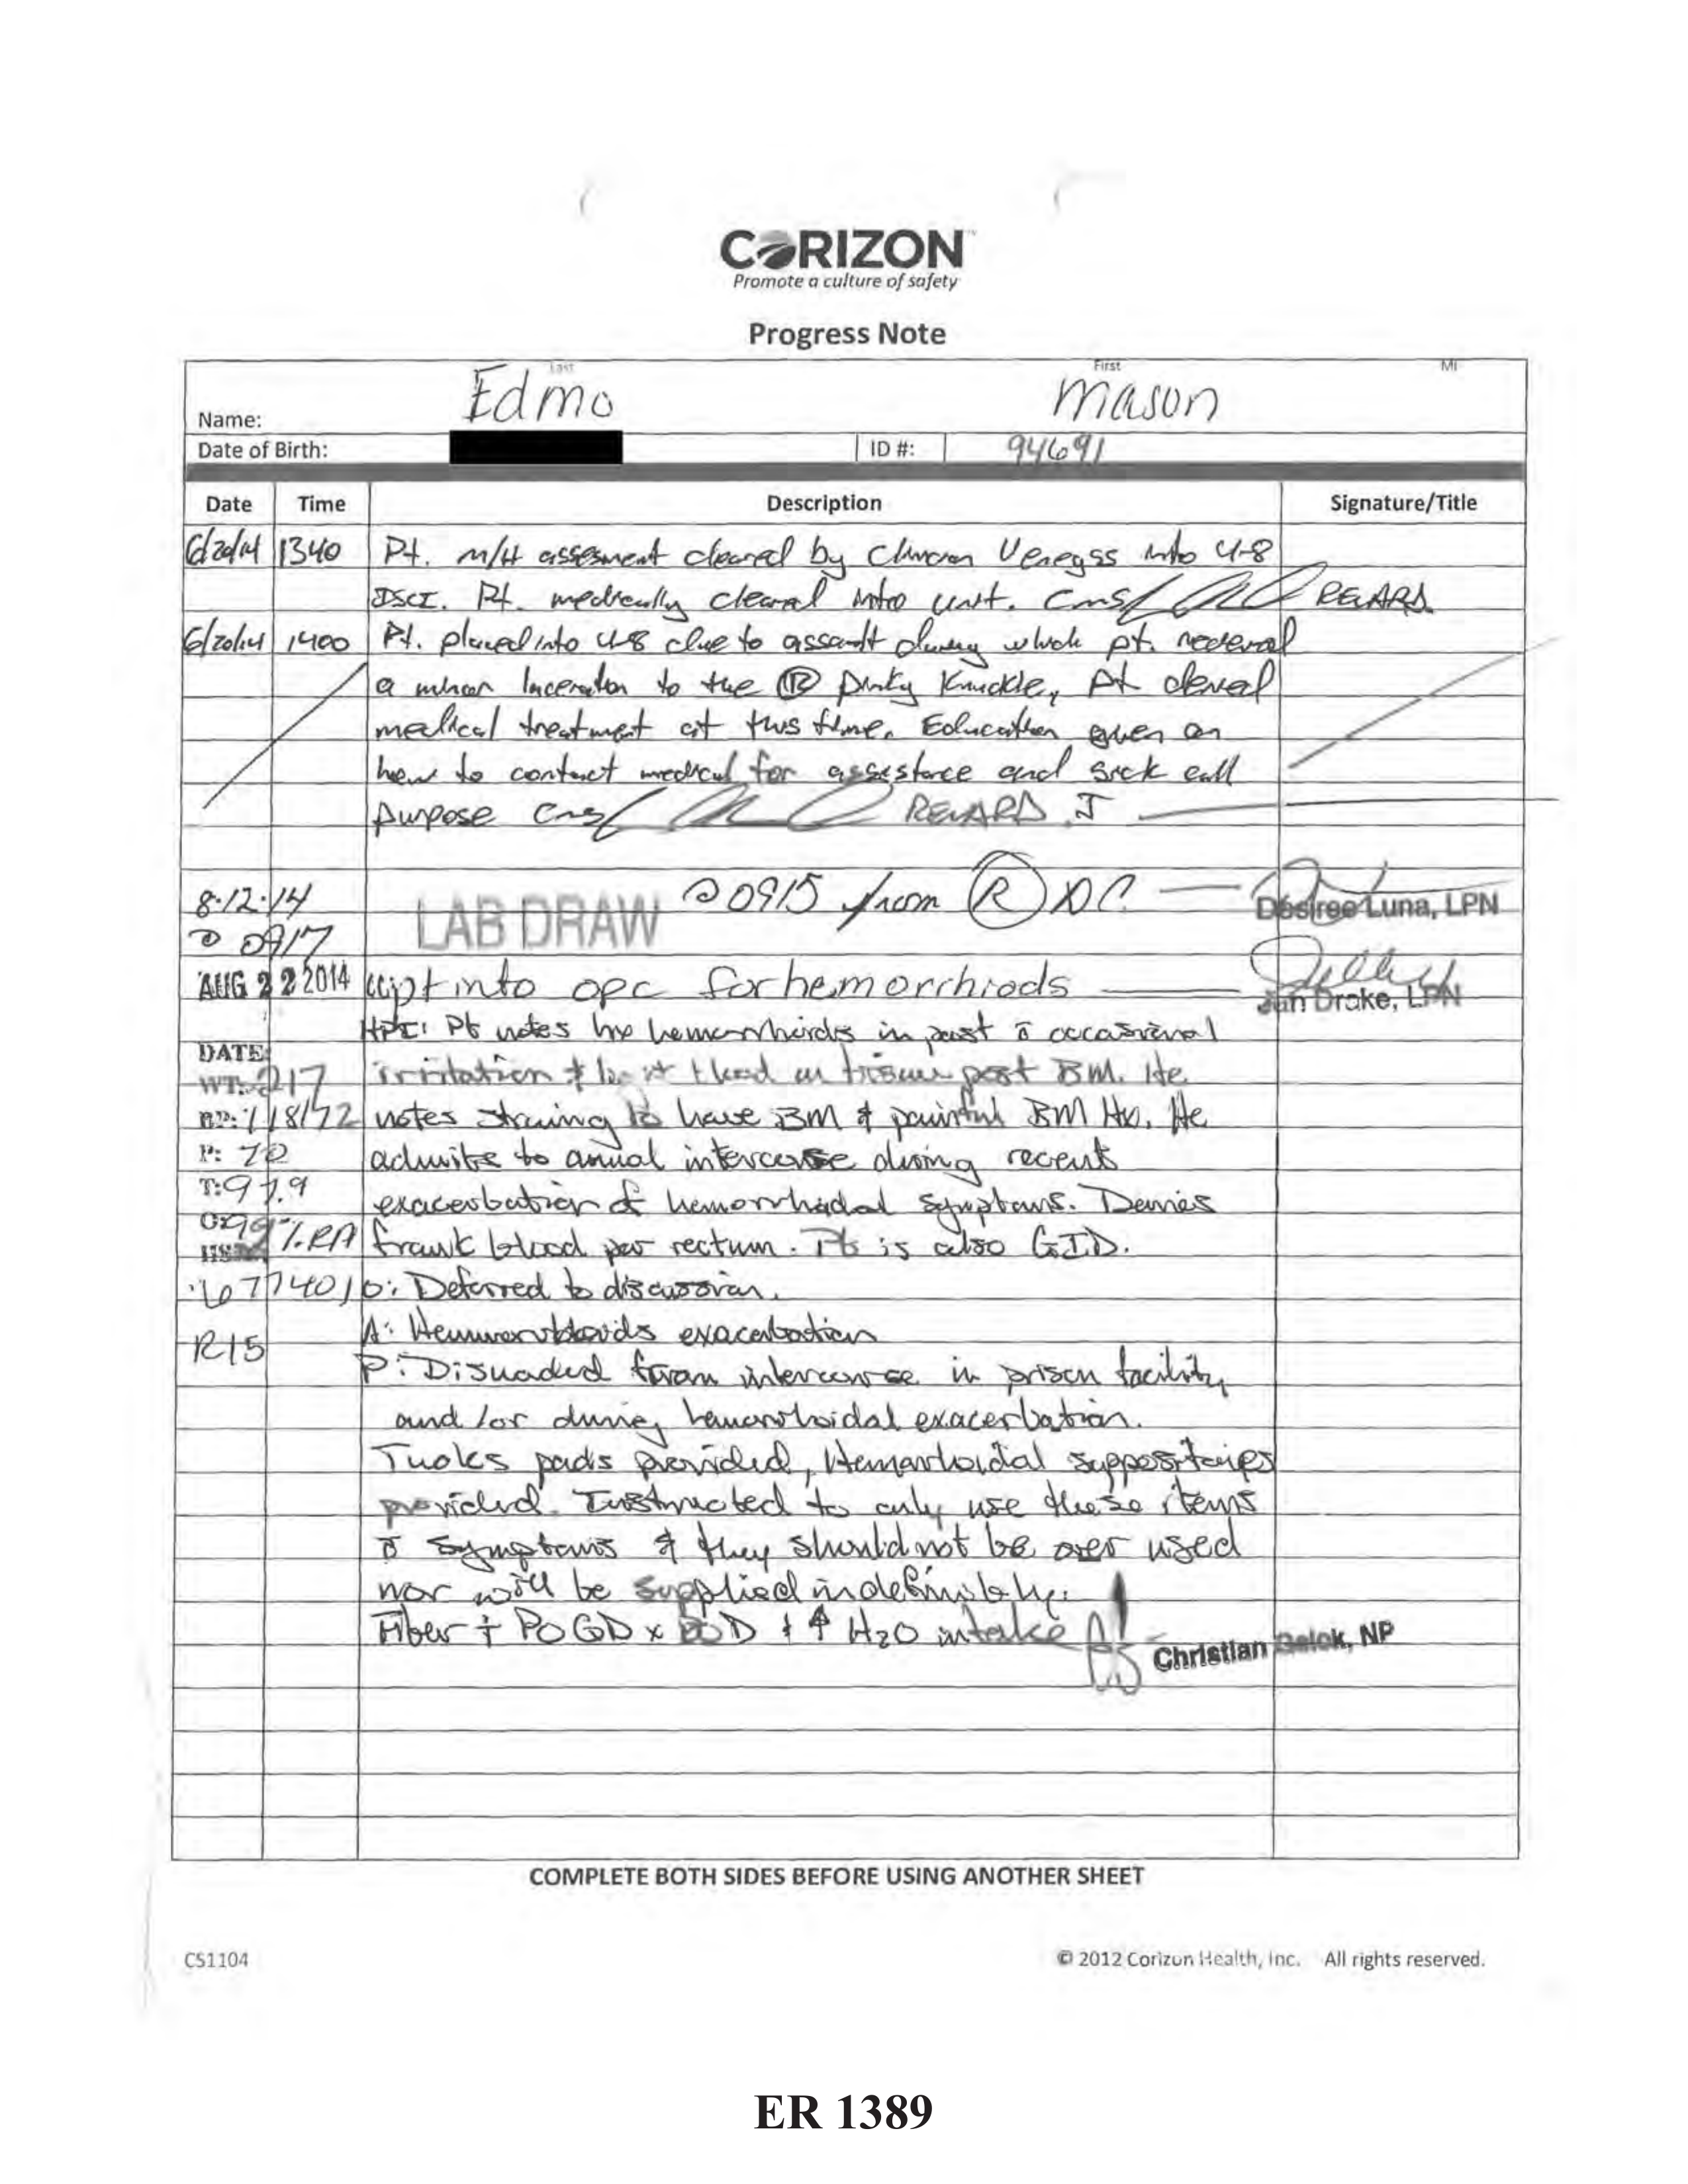 CORIZON™
Promote a culture of safety
Progress Note
Last First MI
Name: Edmo Mason
Date of Birth: ID #: 94691
Date Time Description Signature/Title
6/20/14 1340 Pt. m/H assesment cleared by into U-8
ISCI. Pt. medically cleared into unit. cms/ RENARD
6/20/14 1400 Pt. placed into U-8 due to assault during which pt.
a minor laceration to the Ⓡ pinky Knuckle, pt
medical treatment at this time. Education given on
how to contact medical for assistance and sick call
purpose cms/ RENARD J
8-12-14 LAB DRAW @ 0915 from Ⓡ AC Desiree Luna, LPN
@ 0917
AUG 22 2014 pt into opc for hemorrhiods Jan Drake, LPN
HPI: Pt notes hx hemorrhoids in past c̄ occasional
DATE:
WT: 217 irritation & blood on tissue post BM. He
BP: 118/72 notes straing to have BM & painful BM Hx. He
P: 70 admits to anual intercourse during recent
T: 97.9 exacerbation of hemorrhodal symptoms. Denies
O2 99% RA frank blood per rectum. Pt is also GID.
O: Deferred to discussion.
R15 A: exacerbation
P: Disuaded from intercourse in prison facility
and/or during hemorrhoidal exacerbation.
Tucks pads provided, Hemorrhoidal
provided. Instructed to only use these items
c̄ symptoms & they should not be over used
nor will be supplied indefinitely.
Fiber † PO & ↑ H2O intake Christian Gelok, NP
COMPLETE BOTH SIDES BEFORE USING ANOTHER SHEET
CS1104 © 2012 Corizon Health, Inc. All rights reserved.
ER 1389